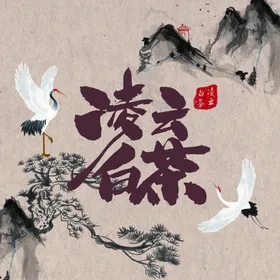 凌云
白茶
凌云
白茶